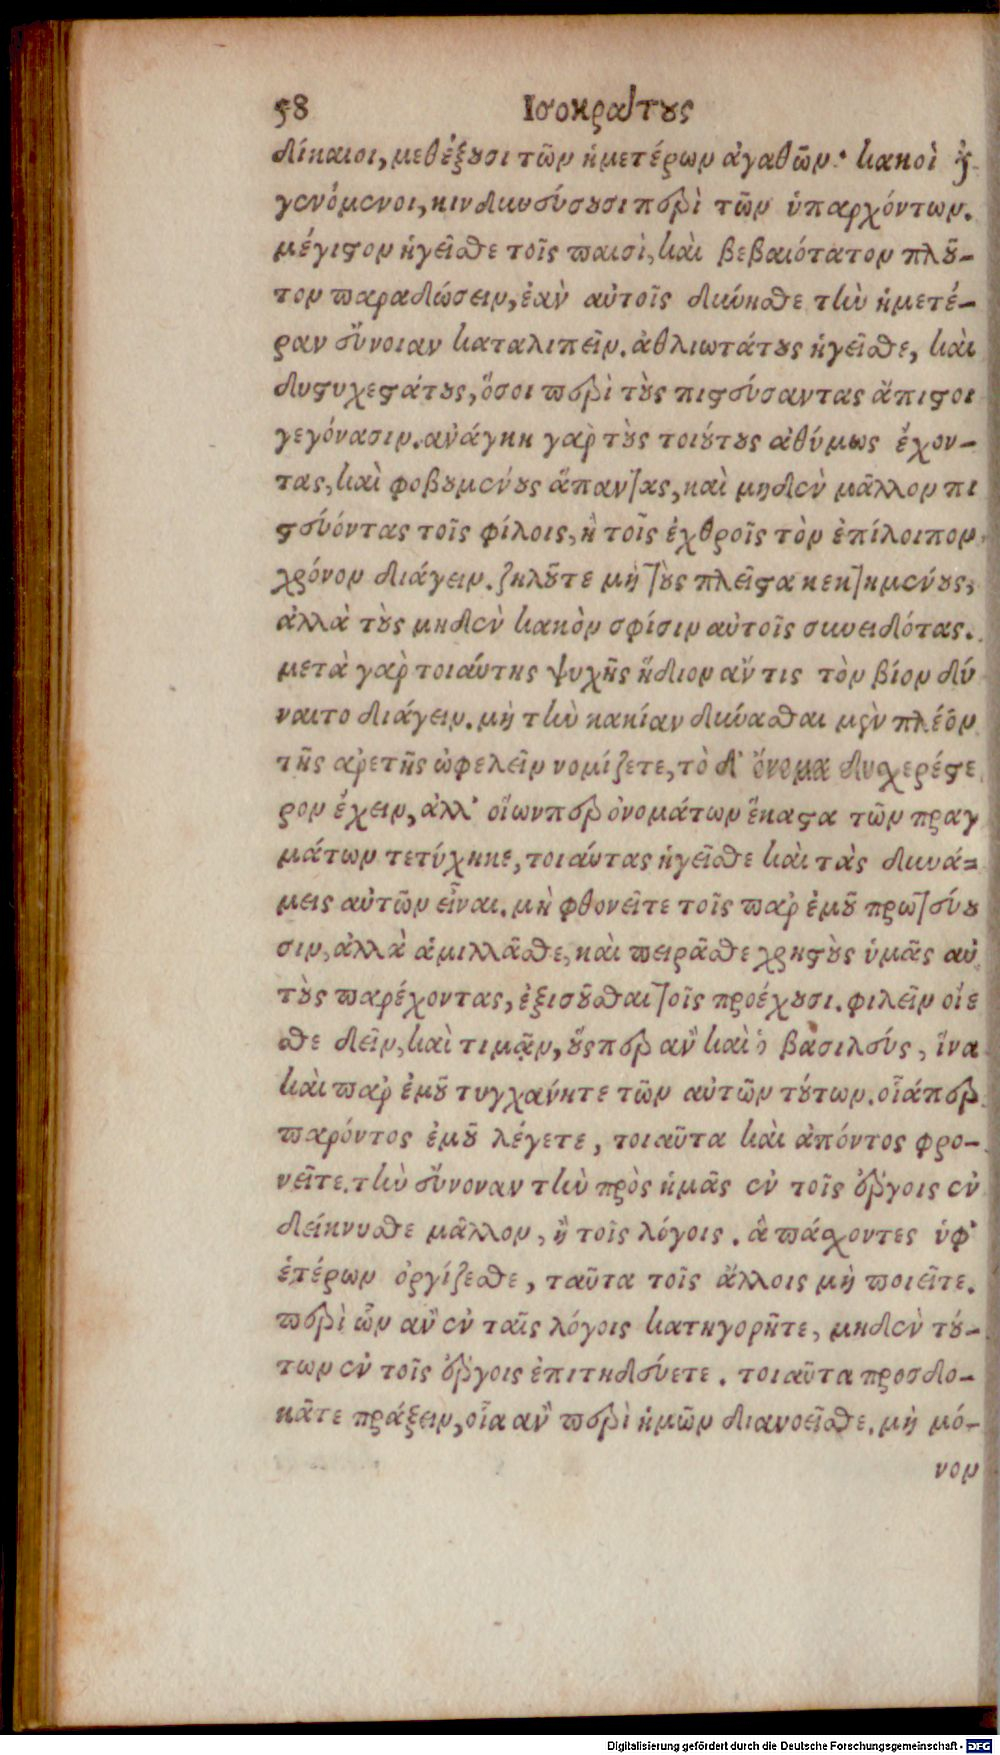 58 Ισοκράτους
δίκαιοι, μεθέξουσι τῶν ἡμετέρων ἀγαθῶν· κακοὶ δὲ
γενόμενοι, κινδυνεύσουσι περὶ τῶν ὑπαρχόντων.
μέγιστον ἡγεῖσθε τοῖς παισὶ, καὶ βεβαιότατον πλοῦ-
τον παραδώσειν, ἐὰν αὐτοῖς δύνησθε τὴν ἡμετέ-
ραν εὔνοιαν καταλιπεῖν. ἀθλιωτάτους ἡγεῖσθε, καὶ
δυστυχεστάτους, ὅσοι περὶ τοὺς πιστεύσαντας ἄπιστοι
γεγόνασιν. ἀνάγκη γὰρ τοὺς τοιούτους ἀθύμως ἔχον-
τας, καὶ φοβουμένους ἅπαντας, καὶ μηδὲν μᾶλλον πι
στεύοντας τοῖς φίλοις, ἢ τοῖς ἐχθροῖς τὸν ἐπίλοιπον
χρόνον διάγειν. ζηλοῦτε μὴ τοὺς πλεῖστα κεκτημένους,
ἀλλὰ τοὺς μηδὲν κακὸν σφίσιν αὐτοῖς συνειδότας.
μετὰ γὰρ τοιαύτης ψυχῆς ἥδιον ἄν τις τὸν βίον δύ
ναιτο διάγειν. μὴ τὴν κακίαν δύνασθαι μὲν πλέον
τῆς ἀρετῆς ὠφελεῖν νομίζετε, τὸ δ' ὄνομα δυσχερέστε
ρον ἔχειν, ἀλλ' οἵωνπερ ὀνομάτων ἕκαστα τῶν πραγ
μάτων τετύχηκε, τοιαύτας ἡγεῖσθε καὶ τὰς δυνά-
μεις αὐτῶν εἶναι. μὴ φθονεῖτε τοῖς παρ' ἐμοῦ πρωτεύου
σιν, ἀλλὰ ἁμιλλᾶσθε, καὶ πειρᾶσθε χρηστοὺς ὑμᾶς αὐ
τοὺς παρέχοντας, ἐξισοῦσθαι τοῖς προέχουσι. φιλεῖν οἴε
σθε δεῖν, καὶ τιμᾷν, οὕσπερ ἂν καὶ ὁ βασιλεύς, ἵνα
καὶ παρ' ἐμοῦ τυγχάνητε τῶν αὐτῶν τούτων. οἷάπερ
παρόντος ἐμοῦ λέγετε, τοιαῦτα καὶ ἀπόντος φρο-
νεῖτε. τὴν εὔνοναν τὴν πρὸς ἡμᾶς ἐν τοῖς ἔργοις ἐν
δείκνυσθε μᾶλλον, ἢ τοῖς λόγοις. ἃ πάσχοντες ὑφ'
ἑτέρων ὀργίζεσθε, ταῦτα τοῖς ἄλλοις μὴ ποιεῖτε.
περὶ ὧν ἂν ἐν ταῖς λόγοις κατηγορῆτε, μηδὲν τού-
των ἐν τοῖς ἔργοις ἐπιτηδεύετε. τοιαῦτα προσδο-
κᾶτε πράξειν, οἷα ἂν περὶ ἡμῶν διανοεῖσθε. μὴ μό-
νον
Digitalisierung gefördert durch die Deutsche Forschungsgemeinschaft - DFG